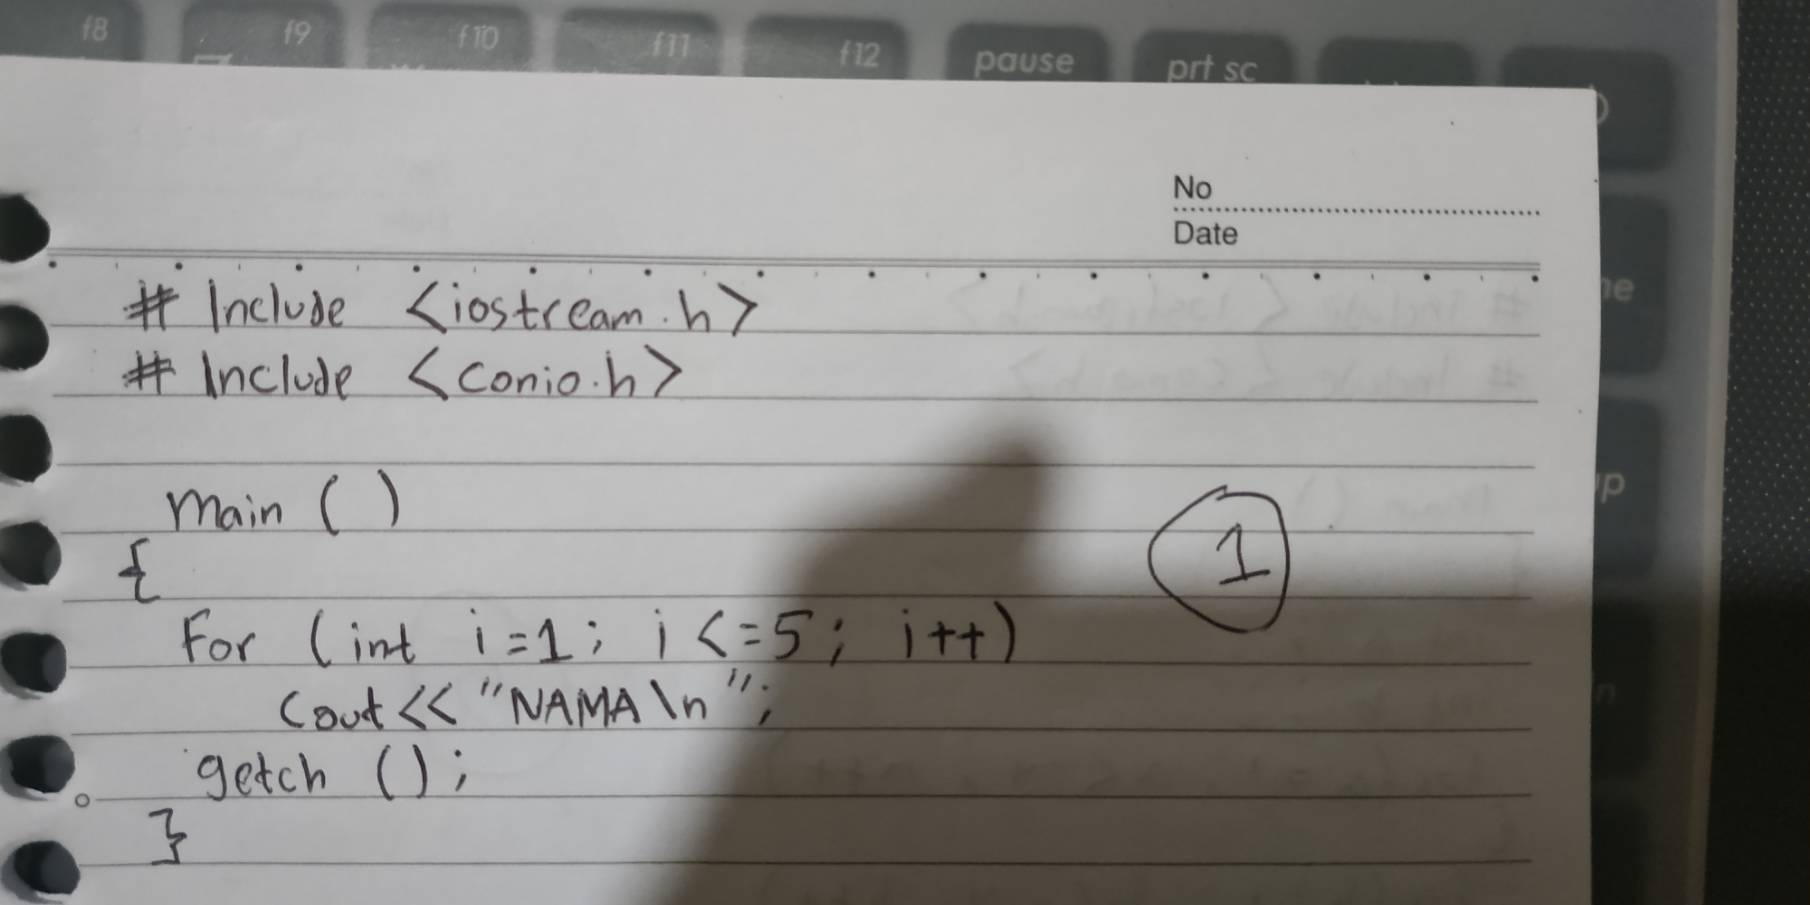 f8 f9 f10 f11 f12 pause prt sc
No
Date
# Include <iostream.h>
# Include <conio.h>
main ()
1
{
For (int i=1; i<=5; i++)
Cout<< "NAMA\n";
getch ();
}